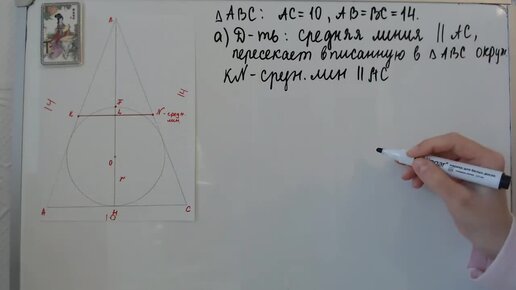 △ABC: AC=10, AB=BC=14.
а) Д-ть: средняя линия || AC,
пересекает вписанную в △ABC окруж.
KN-средн. лин || AC
B
14
14
K
L
N-средн.
лин
O
r
A
H
C
10